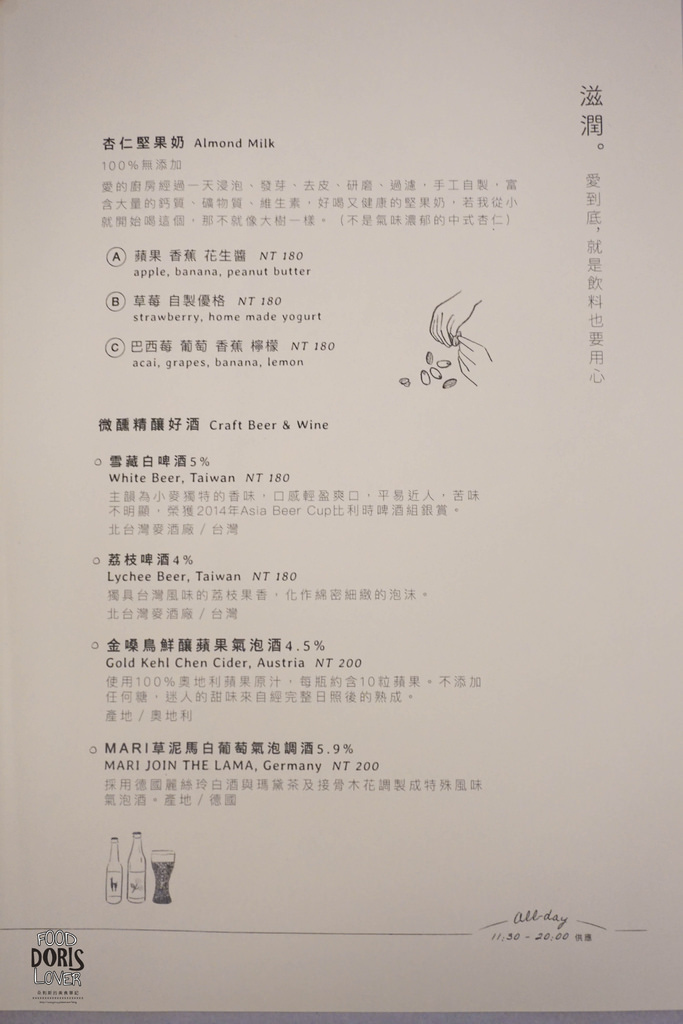 滋潤。
愛到底，就是飲料也要用心
杏仁堅果奶 Almond Milk
100%無添加
愛的廚房經過一天浸泡、發芽、去皮、研磨、過濾，手工自製，富
含大量的鈣質、礦物質、維生素，好喝又健康的堅果奶，若我從小
就開始喝這個，那不就像大樹一樣。（不是氣味濃郁的中式杏仁）
A 蘋果 香蕉 花生醬 NT 180
apple, banana, peanut butter
B 草莓 自製優格 NT 180
strawberry, home made yogurt
C 巴西莓 葡萄 香蕉 檸檬 NT 180
acai, grapes, banana, lemon
微醺精釀好酒 Craft Beer & Wine
雪藏白啤酒5%
White Beer, Taiwan NT 180
主韻為小麥獨特的香味，口感輕盈爽口，平易近人，苦味
不明顯，榮獲2014年Asia Beer Cup比利時啤酒組銀賞。
北台灣麥酒廠 / 台灣
荔枝啤酒4%
Lychee Beer, Taiwan NT 180
獨具台灣風味的荔枝果香，化作綿密細緻的泡沫。
北台灣麥酒廠 / 台灣
金嗓鳥鮮釀蘋果氣泡酒4.5%
Gold Kehl Chen Cider, Austria NT 200
使用100%奧地利蘋果原汁，每瓶約含10粒蘋果。不添加
任何糖，迷人的甜味來自經完整日照後的熟成。
產地 / 奧地利
MARI草泥馬白葡萄氣泡調酒5.9%
MARI JOIN THE LAMA, Germany NT 200
採用德國麗絲玲白酒與瑪黛茶及接骨木花調製成特殊風味
氣泡酒。產地 / 德國
All-day
11:30 - 20:00 供應
FOOD
DORIS
LOVER